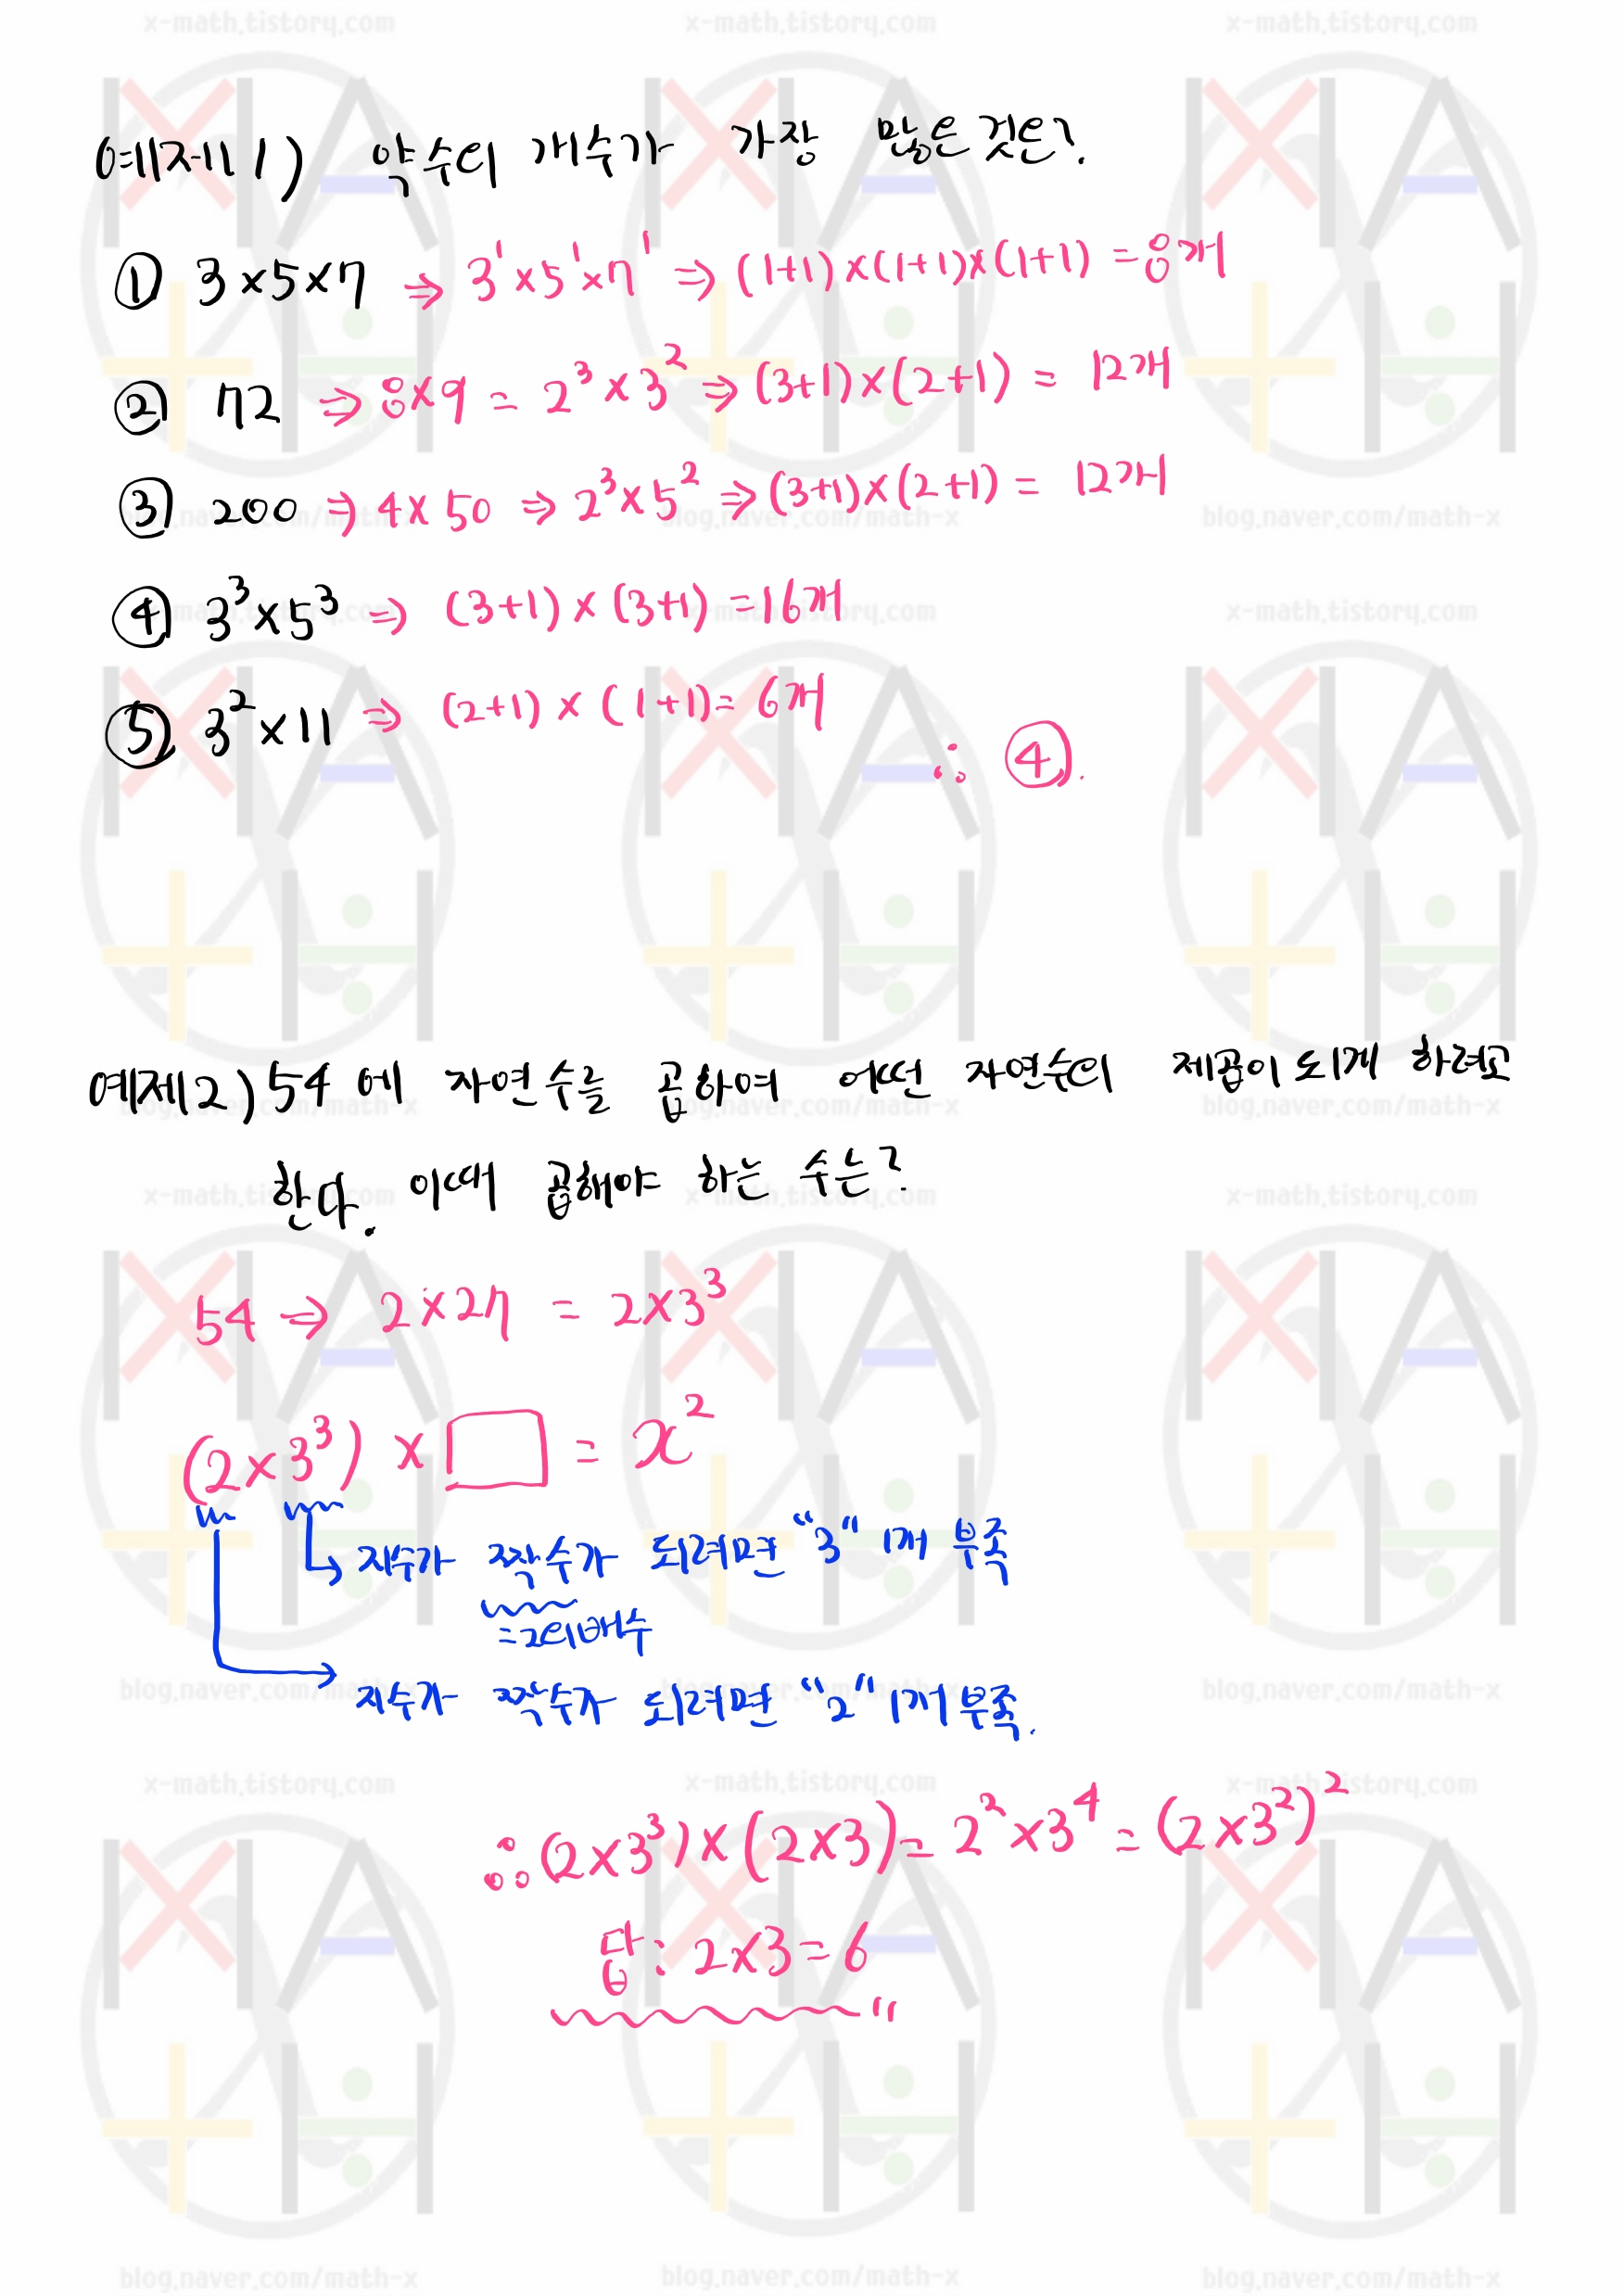 x-math.tistory.com x-math.tistory.com x-math.tistory.com
예제1) 약수의 개수가 가장 많은것은?
① 3×5×7 ⇒ 3¹×5¹×7¹ ⇒ (1+1)×(1+1)×(1+1) = 8개
② 72 ⇒ 8×9 = 2³×3² ⇒ (3+1)×(2+1) = 12개
③ 200 ⇒ 4×50 ⇒ 2³×5² ⇒ (3+1)×(2+1) = 12개
blog.naver.com/math-x blog.naver.com/math-x blog.naver.com/math-x
④ 3³×5³ ⇒ (3+1)×(3+1) = 16개
x-math.tistory.com x-math.tistory.com x-math.tistory.com
⑤ 3²×11 ⇒ (2+1)×(1+1) = 6개
∴ ④.
예제2) 54에 자연수를 곱하여 어떤 자연수의 제곱이 되게 하려고
blog.naver.com/math-x blog.naver.com/math-x blog.naver.com/math-x
한다. 이때 곱해야 하는 수는?
x-math.tistory.com x-math.tistory.com x-math.tistory.com
54 ⇒ 2×27 = 2×3³
(2×3³) × □ = x²
지수가 짝수가 되려면 "3" 1개 부족
=2의배수
지수가 짝수가 되려면 "2" 1개 부족.
blog.naver.com/math-x blog.naver.com/math-x blog.naver.com/math-x
x-math.tistory.com x-math.tistory.com x-math.tistory.com
∴ (2×3³)×(2×3) = 2²×3⁴ = (2×3²)²
답: 2×3=6
blog.naver.com/math-x blog.naver.com/math-x blog.naver.com/math-x